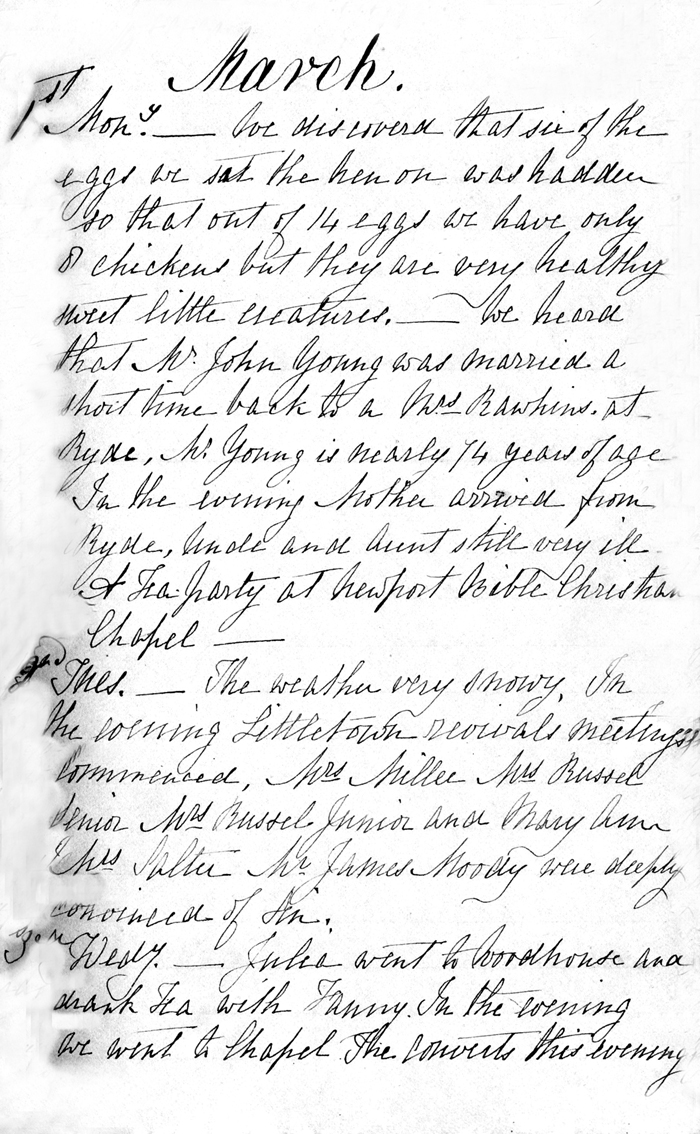 March.
1st Mony. — We discoverd that six of the
eggs we sat the hen on was hadden
so that out of 14 eggs we have only
8 chickens but they are very healthy
sweet little creatures. — We heard
that Mr. John Young was married a
short time back to a Mrs Rawkins. at
Ryde, Mr Young is nearly 74 years of age
In the evening Mother arrived from
Ryde, Uncle and Aunt still very ill
A Tea party at Newport Bible Christian
Chapel —
2nd Tues. — The weather very snowy. In
the evening Littletown revivals meetings
commenced, Mrs Millee Mrs Russel
Senior Mrs Russel Junior and Mary Ann
& Mrs Salter Mr James Moody were deeply
convinced of Sin.
3rd Wedy. — Julia went to Woodhouse and
drank Tea with Fanny. In the evening
we went to Chapel The converts this evening